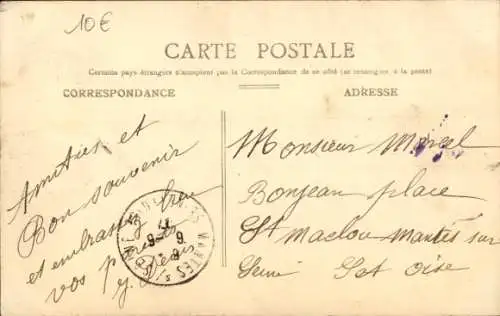 10€
CARTE POSTALE
Certains pays étrangers n'acceptent pas la Correspondance de ce côté (se renseigner à la poste)
CORRESPONDANCE
ADRESSE
Amitiés et
Bon souvenir
et embrassez bien
vos parents
Monsieur Marcel
Bonjean place
St Maclou Mantes sur
Seine Set Oise
MANTES